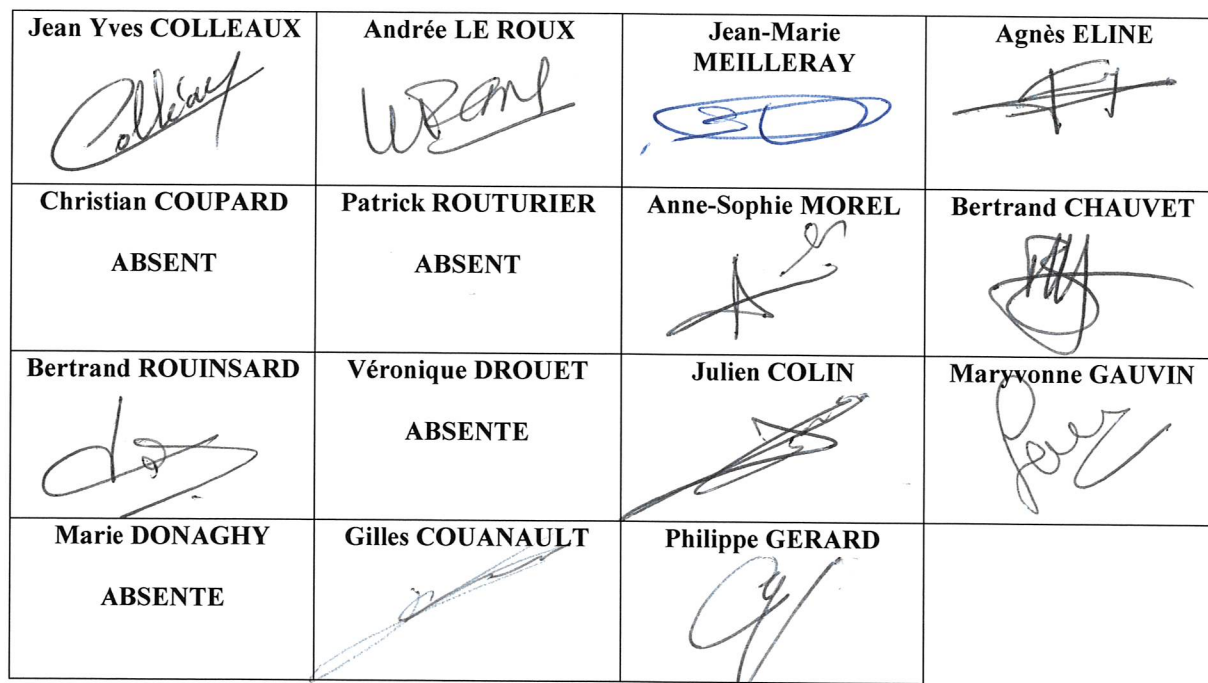 Jean Yves COLLEAUX
Andrée LE ROUX
Jean-Marie
MEILLERAY
Agnès ELINE
Colléaux
Christian COUPARD
ABSENT
Patrick ROUTURIER
ABSENT
Anne-Sophie MOREL
Bertrand CHAUVET
Bertrand ROUINSARD
Véronique DROUET
ABSENTE
Julien COLIN
Maryvonne GAUVIN
Marie DONAGHY
ABSENTE
Gilles COUANAULT
Philippe GERARD